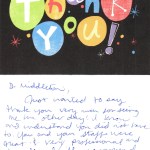 Thank
You!
Dr Middleton,
Just wanted to say
thank you very much for seeing
me the other day! I know
and understand you did not have
to. You and your staff were
great & very professional and